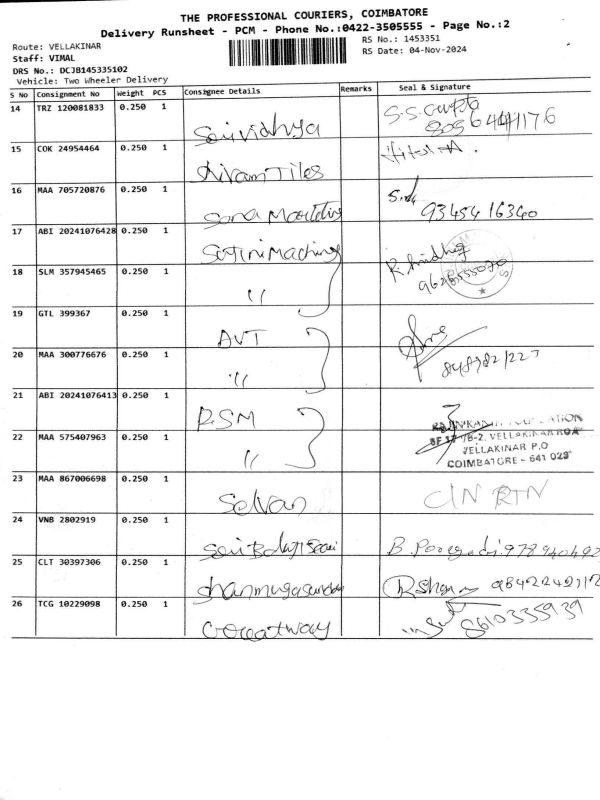 THE PROFESSIONAL COURIERS, COIMBATORE
Delivery Runsheet - PCM - Phone No.:0422-3505555 - Page No.:2
Route: VELLAKINAR
RS No.: 1453351
Staff: VIMAL
RS Date: 04-Nov-2024
DRS No.: DCJB145335102
Vehicle: Two Wheeler Delivery
S No Consignment No Weight PCS Consignee Details Remarks Seal & Signature
14 TRZ 120081833 0.250 1 Saividhya S.S. Gupta
15 COK 24954464 0.250 1 shivam Tiles
16 MAA 705720876 0.250 1 Sona Moulding 9345416340
17 ABI 20241076428 0.250 1
18 SLM 357945465 0.250 1 "
19 GTL 399367 0.250 1 AVT
20 MAA 300776676 0.250 1 "
21 ABI 20241076413 0.250 1 RSM
22 MAA 575407963 0.250 1 " VELLAKINAR P.O
COIMBATORE - 641 029
23 MAA 867006698 0.250 1 Selvan
24 VNB 2802919 0.250 1
25 CLT 30397306 0.250 1 shanmugasundar
26 TCG 10229098 0.250 1 Greatway 8610335939